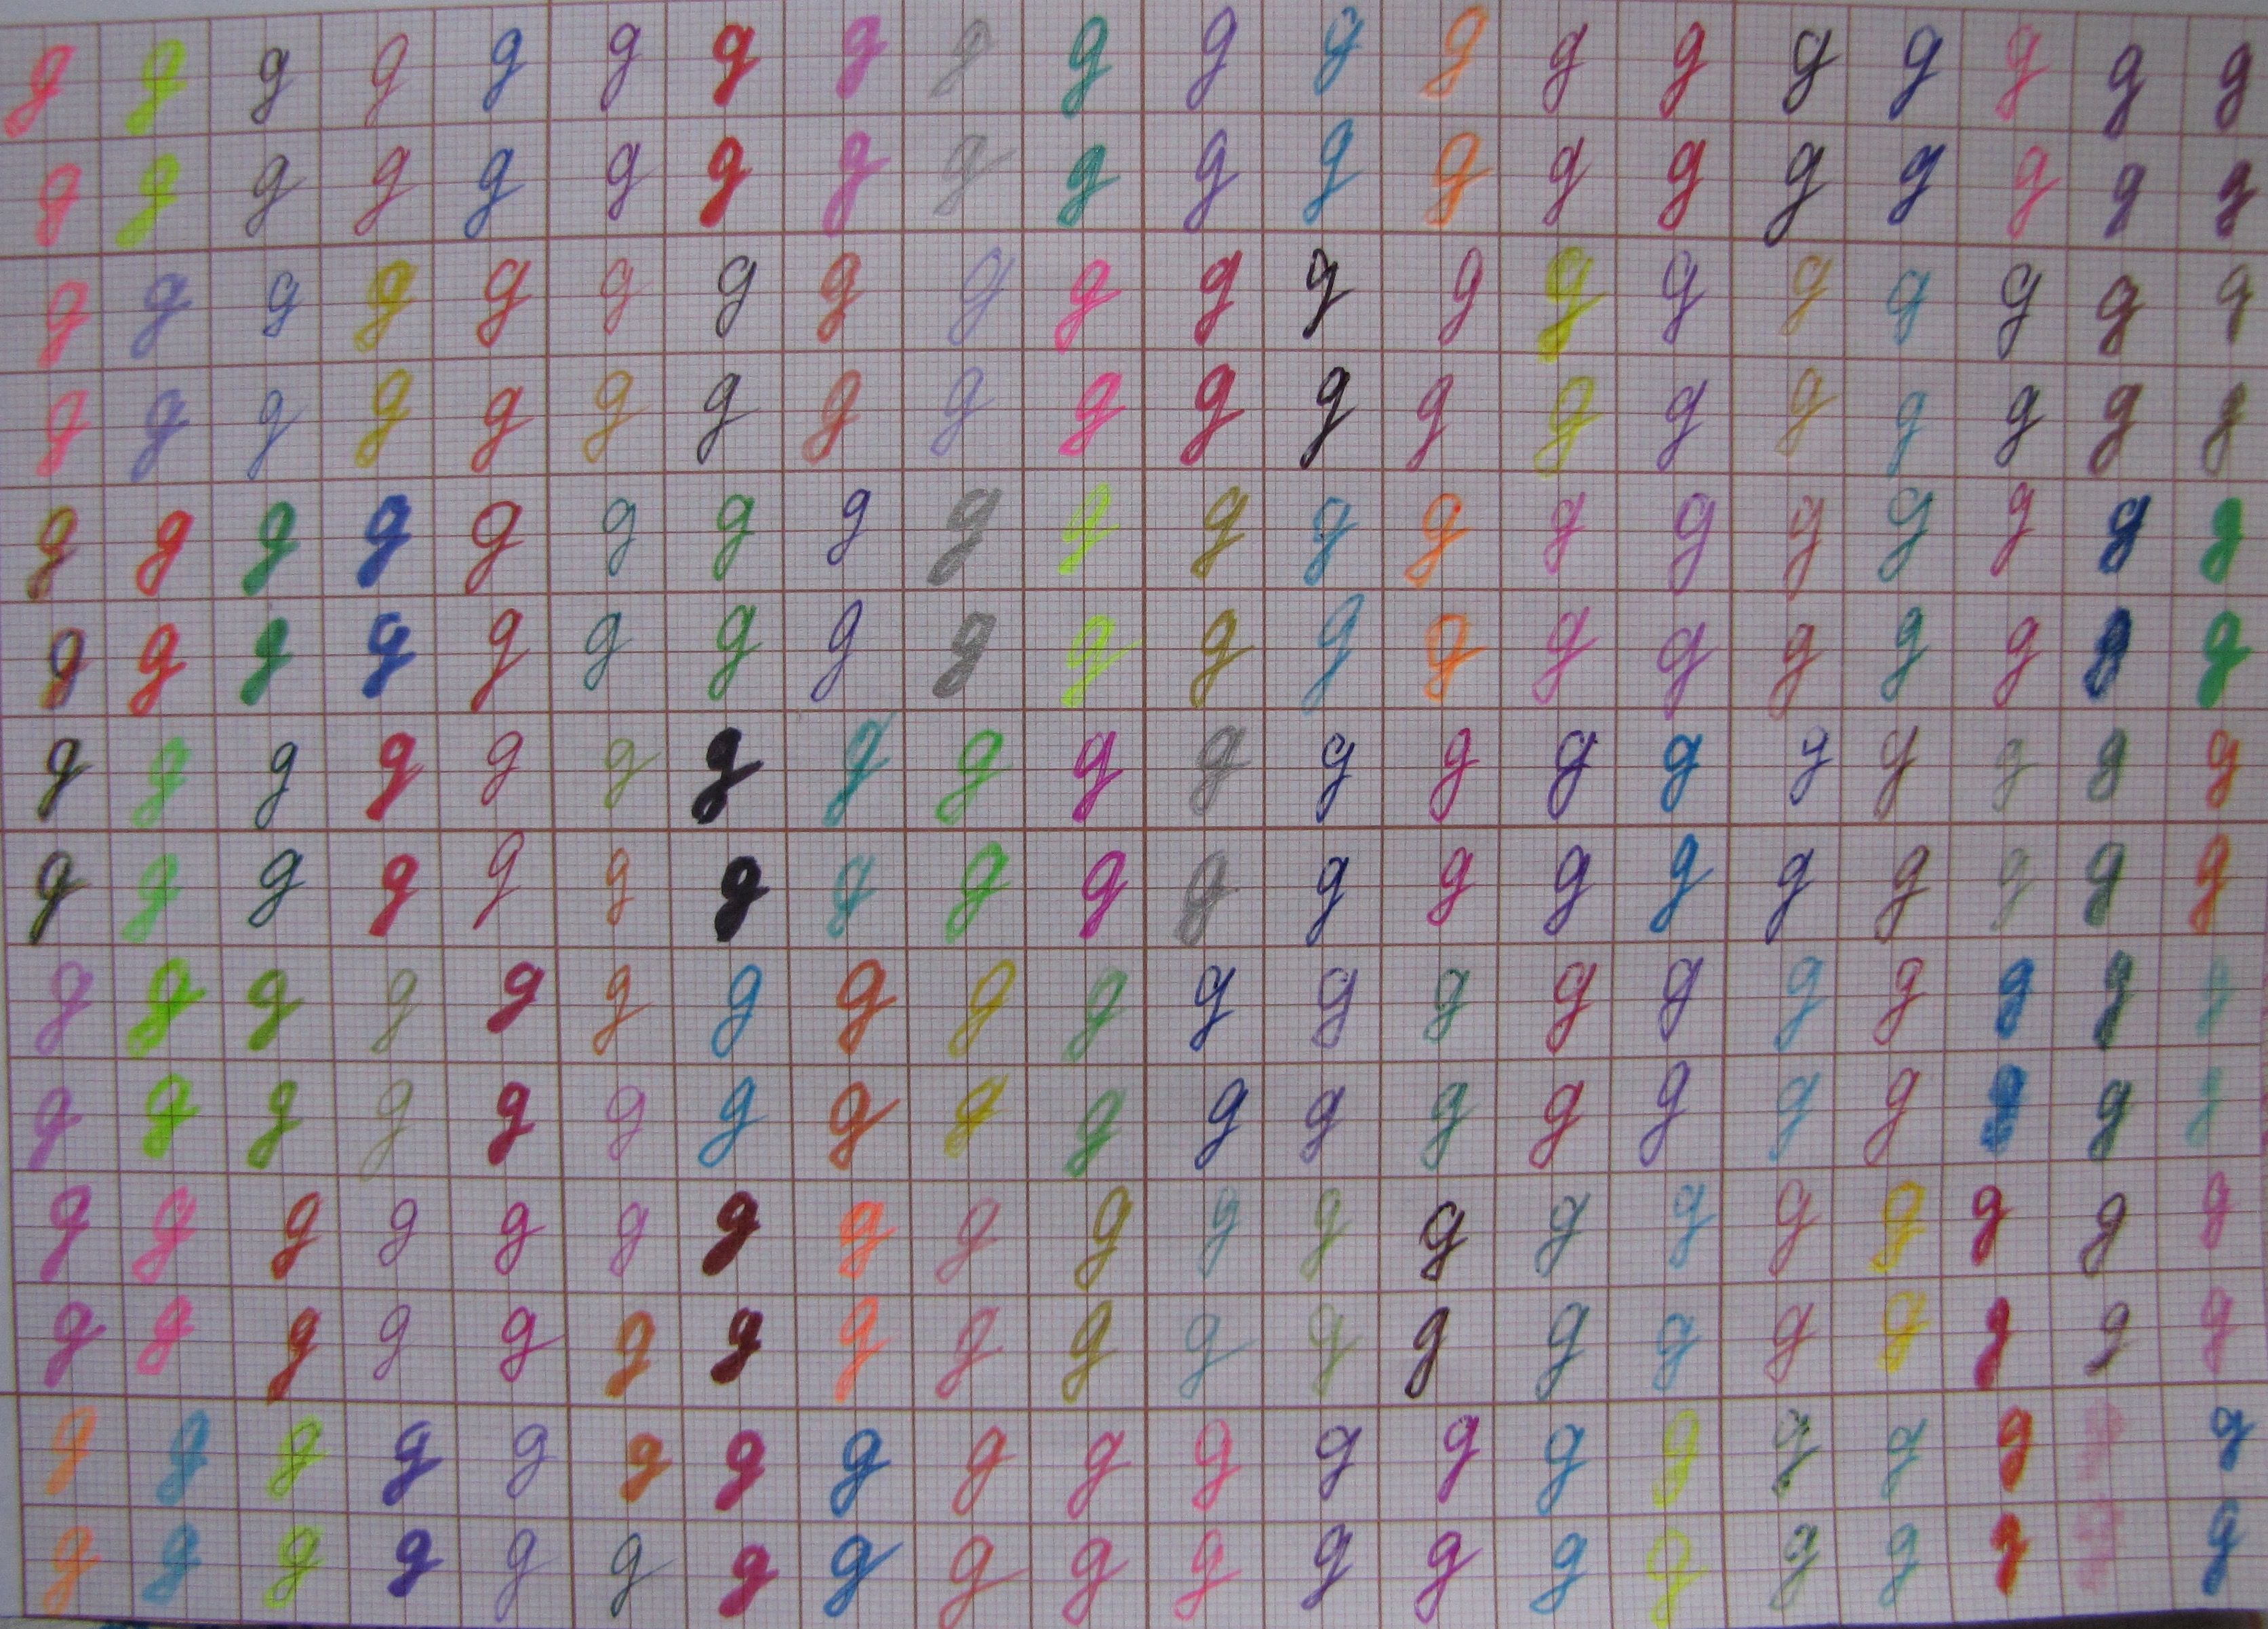 g g g g g g g g g g g g g g g g g g g g
g g g g g g g g g g g g g g g g g g g g
g g g g g g g g g g g g g g g g g g g g
g g g g g g g g g g g g g g g g g g g g
g g g g g g g g g g g g g g g g g g g g
g g g g g g g g g g g g g g g g g g g g
g g g g g g g g g g g g g g g g g g g g
g g g g g g g g g g g g g g g g g g g g
g g g g g g g g g g g g g g g g g g g g
g g g g g g g g g g g g g g g g g g g g
g g g g g g g g g g g g g g g g g g g g
g g g g g g g g g g g g g g g g g g g g
g g g g g g g g g g g g g g g g g g g g
g g g g g g g g g g g g g g g g g g g g